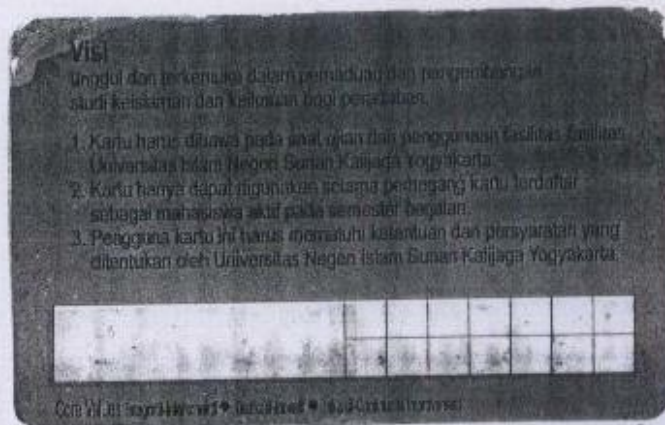 Visi
Unggul dan terkemuka dalam pemaduan dan pengembangan
studi keislaman dan keilmuan bagi peradaban.
1. Kartu harus dibawa pada saat ujian dan penggunaan fasilitas-fasilitas
Universitas Islam Negeri Sunan Kalijaga Yogyakarta.
2. Kartu hanya dapat digunakan selama pemegang kartu terdaftar
sebagai mahasiswa aktif pada semester berjalan.
3. Pengguna kartu ini harus mematuhi ketentuan dan persyaratan yang
ditentukan oleh Universitas Negeri Islam Sunan Kalijaga Yogyakarta.
Core Values